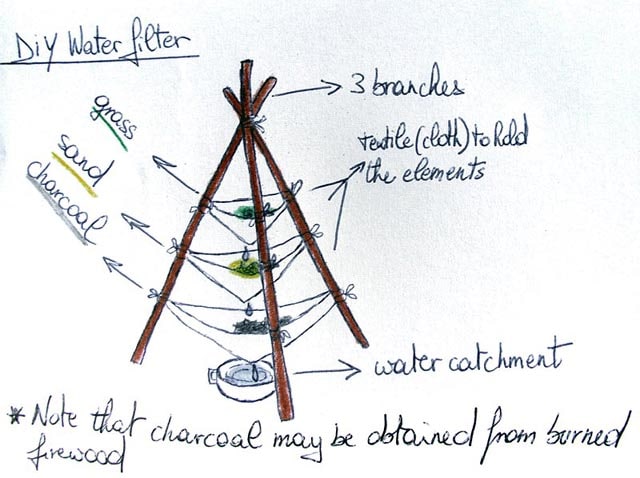 DiY Water filter
3 branches
grass
textile (cloth) to hold
the elements
sand
charcoal
water catchment
* Note that charcoal may be obtained from burned
firewood